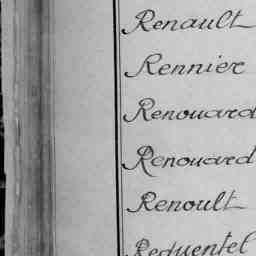 Renault
Rennier
Renouard
Renouard
Renoult
Requentel